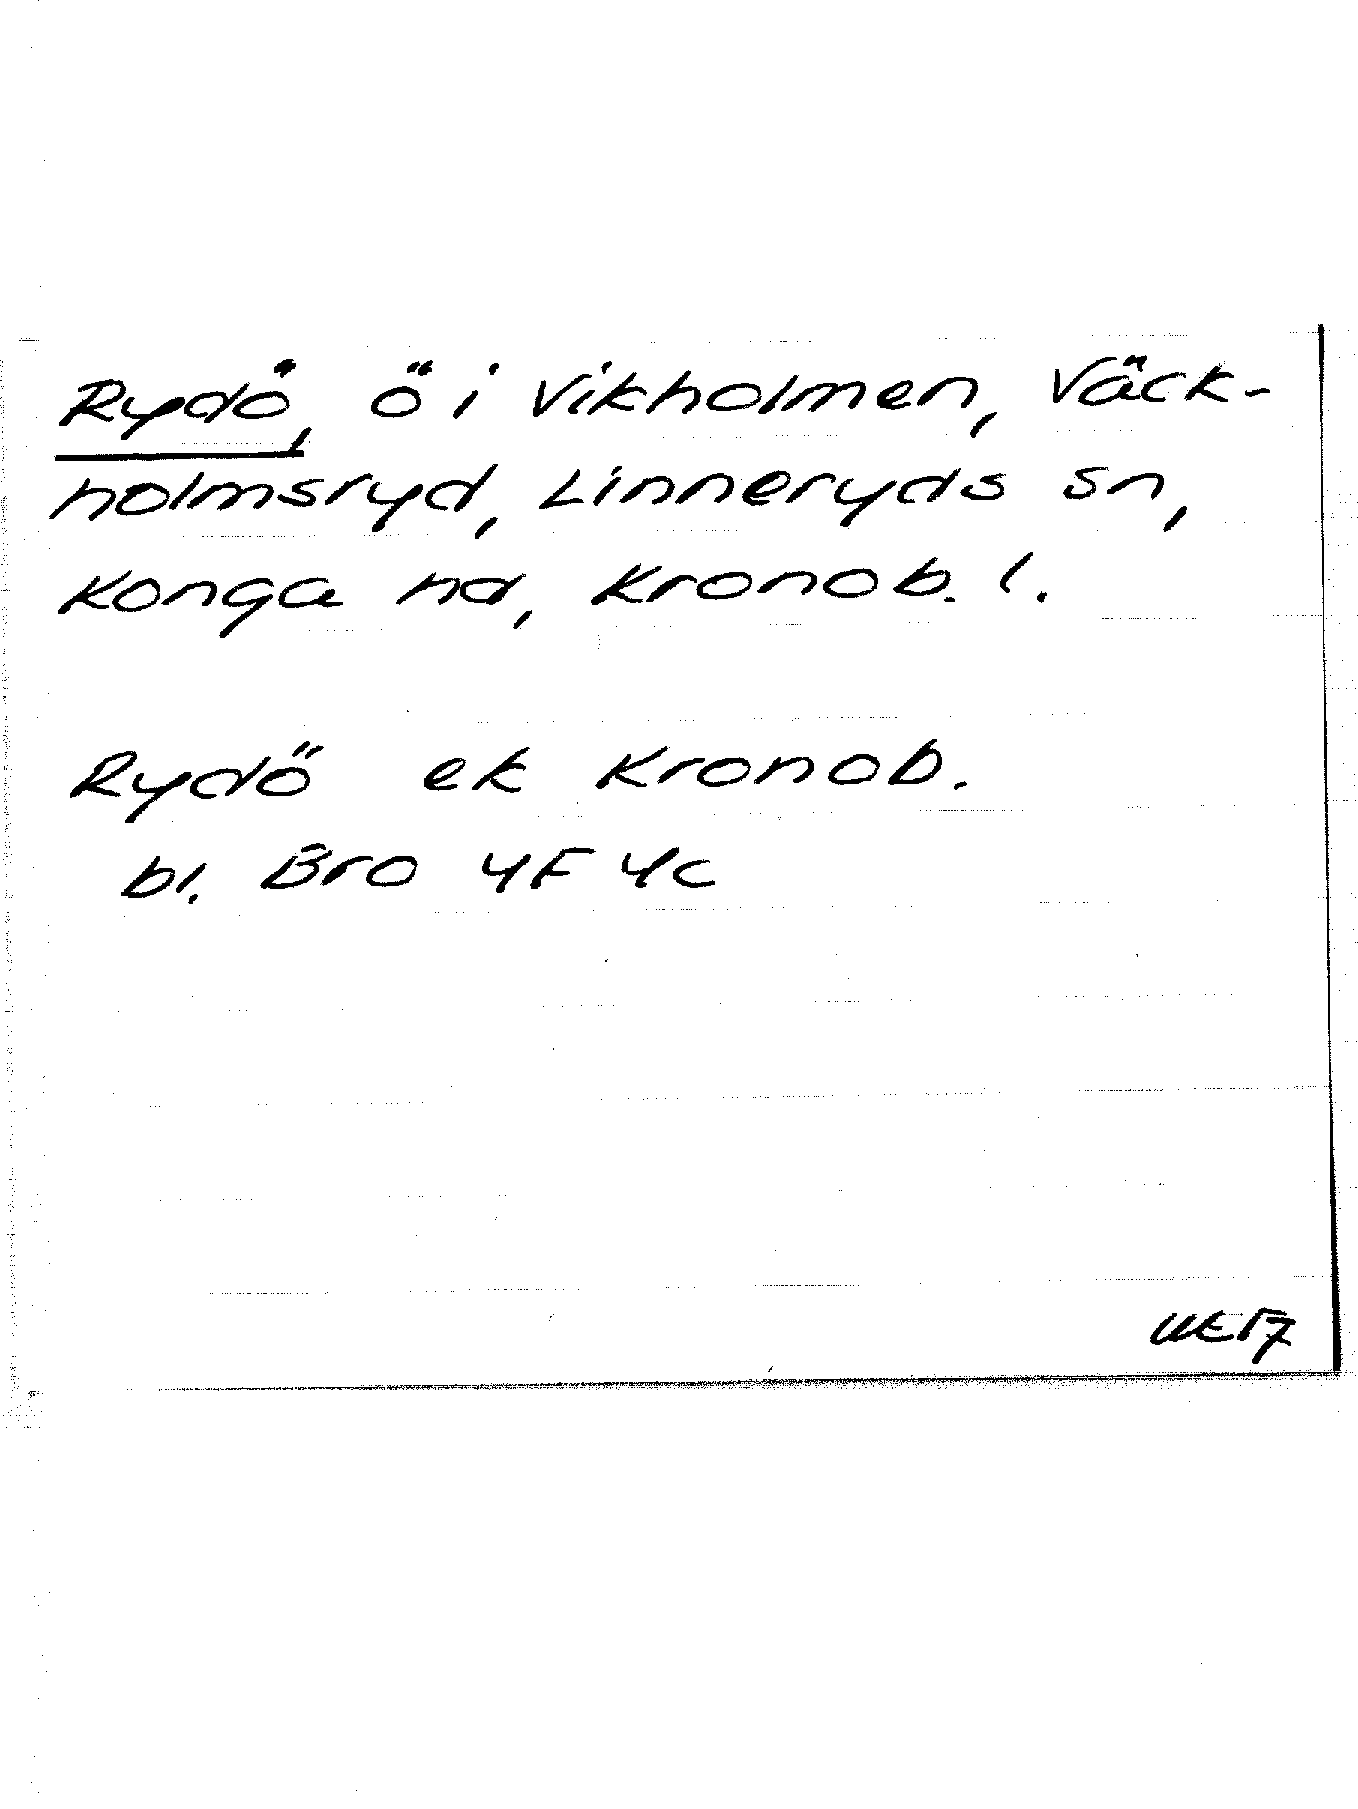 Rydö, ö i Vikholmen, Väck-
holmsryd, Linneryds sn,
Konga hd, Kronob. l.
Rydö ek Kronob.
bl. Bro 4F 4c